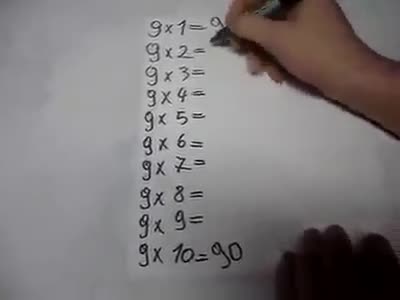 9 x 1 = 9
9 x 2 =
9 x 3 =
9 x 4 =
9 x 5 =
9 x 6 =
9 x 7 =
9 x 8 =
9 x 9 =
9 x 10 = 90